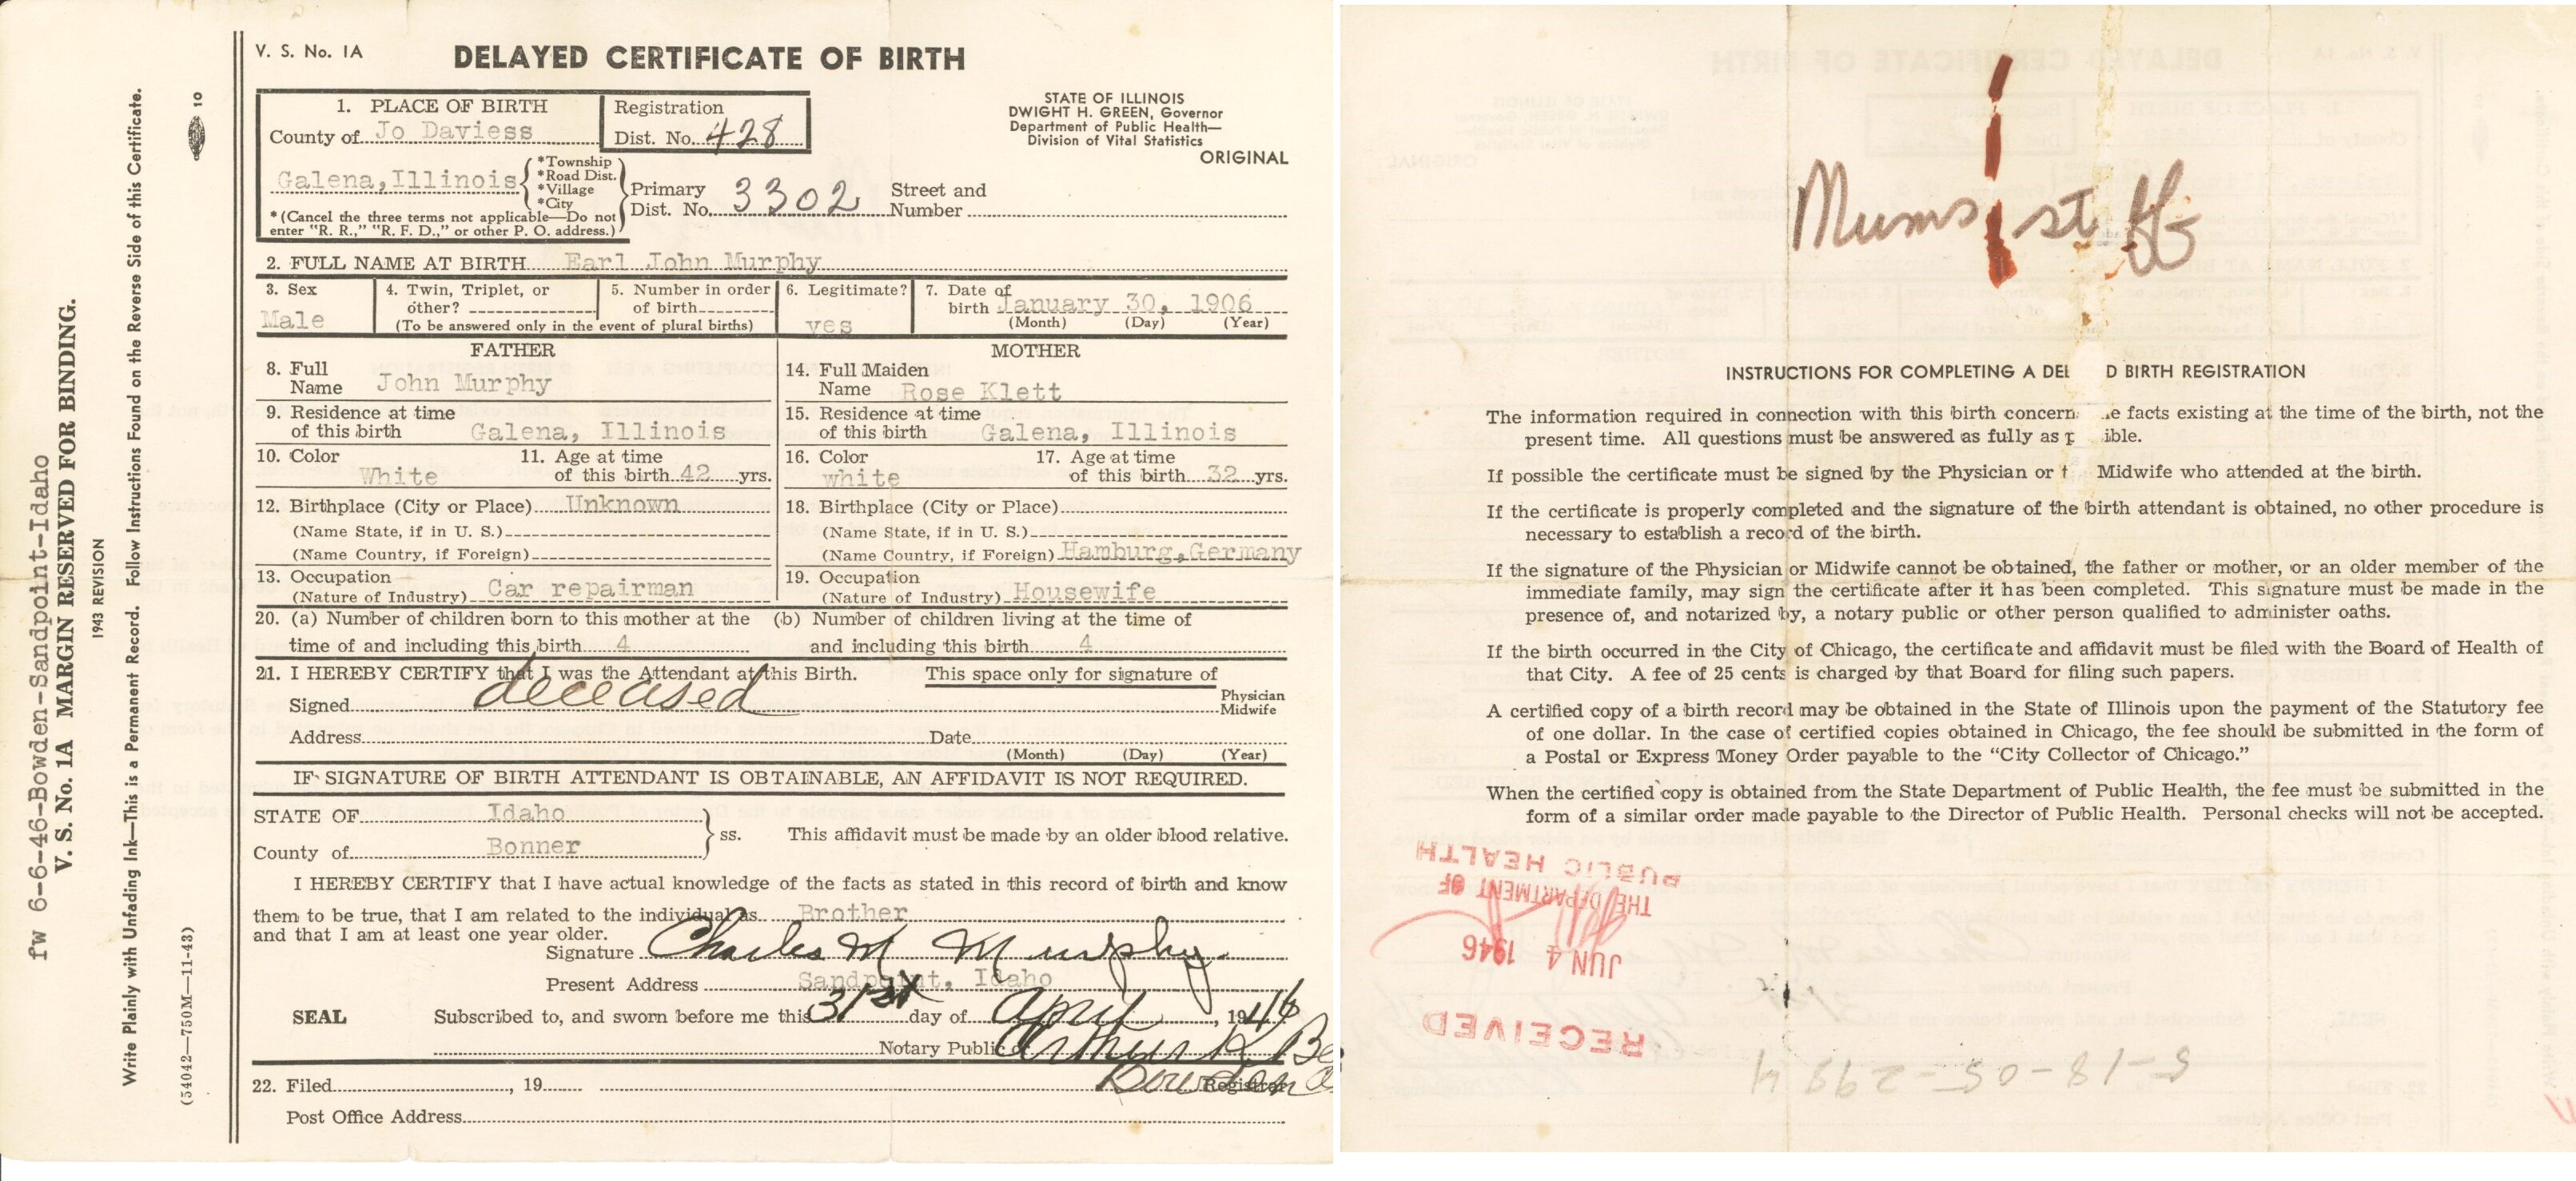 V. S. No. 1A
DELAYED CERTIFICATE OF BIRTH
1. PLACE OF BIRTH
County of Jo Daviess
Registration
Dist. No. 428
STATE OF ILLINOIS
DWIGHT H. GREEN, Governor
Department of Public Health—
Division of Vital Statistics
ORIGINAL
Galena, Illinois
*Township
*Road Dist.
*Village
*City
Primary
Dist. No. 3302
Street and
Number
* (Cancel the three terms not applicable—Do not
enter "R. R.," "R. F. D.," or other P. O. address.)
2. FULL NAME AT BIRTH Earl John Murphy
3. Sex
Male
4. Twin, Triplet, or
other?
5. Number in order
of birth
(To be answered only in the event of plural births)
6. Legitimate?
yes
7. Date of
birth January 30, 1906
(Month) (Day) (Year)
FATHER
8. Full
Name John Murphy
9. Residence at time
of this birth Galena, Illinois
10. Color
White
11. Age at time
of this birth 42 yrs.
12. Birthplace (City or Place) Unknown
(Name State, if in U. S.)
(Name Country, if Foreign)
13. Occupation
(Nature of Industry) Car repairman
MOTHER
14. Full Maiden
Name Rose Klett
15. Residence at time
of this birth Galena, Illinois
16. Color
white
17. Age at time
of this birth 32 yrs.
18. Birthplace (City or Place)
(Name State, if in U. S.)
(Name Country, if Foreign) Hamburg, Germany
19. Occupation
(Nature of Industry) Housewife
20. (a) Number of children born to this mother at the
time of and including this birth 4
(b) Number of children living at the time of
and including this birth 4
21. I HEREBY CERTIFY that I was the Attendant at this Birth. This space only for signature of
Signed deceased
Physician
Midwife
Address Date
(Month) (Day) (Year)
IF SIGNATURE OF BIRTH ATTENDANT IS OBTAINABLE, AN AFFIDAVIT IS NOT REQUIRED.
STATE OF Idaho
County of Bonner
ss. This affidavit must be made by an older blood relative.
I HEREBY CERTIFY that I have actual knowledge of the facts as stated in this record of birth and know
them to be true, that I am related to the individual as Brother
and that I am at least one year older.
Signature Charles M Murphy
Present Address Sandpoint, Idaho
SEAL Subscribed to, and sworn before me this 31st day of April, 1946
Notary Public Arthur K.
Bowden
22. Filed , 19 Registrar
Post Office Address
fw 6-6-46-Bowden-Sandpoint-Idaho
V. S. No. 1A MARGIN RESERVED FOR BINDING.
1943 REVISION
Write Plainly with Unfading Ink—This is a Permanent Record. Follow Instructions Found on the Reverse Side of this Certificate.
(54042—750M—11-43)
10
Mums st
INSTRUCTIONS FOR COMPLETING A DEL D BIRTH REGISTRATION
The information required in connection with this birth concern e facts existing at the time of the birth, not the
present time. All questions must be answered as fully as p ible.
If possible the certificate must be signed by the Physician or t Midwife who attended at the birth.
If the certificate is properly completed and the signature of the birth attendant is obtained, no other procedure is
necessary to establish a record of the birth.
If the signature of the Physician or Midwife cannot be obtained, the father or mother, or an older member of the
immediate family, may sign the certificate after it has been completed. This signature must be made in the
presence of, and notarized by, a notary public or other person qualified to administer oaths.
If the birth occurred in the City of Chicago, the certificate and affidavit must be filed with the Board of Health of
that City. A fee of 25 cents is charged by that Board for filing such papers.
A certified copy of a birth record may be obtained in the State of Illinois upon the payment of the Statutory fee
of one dollar. In the case of certified copies obtained in Chicago, the fee should be submitted in the form of
a Postal or Express Money Order payable to the "City Collector of Chicago."
When the certified copy is obtained from the State Department of Public Health, the fee must be submitted in the
form of a similar order made payable to the Director of Public Health. Personal checks will not be accepted.
RECEIVED
JUN 4 1946
THE DEPARTMENT OF
PUBLIC HEALTH
5-18-05-2984